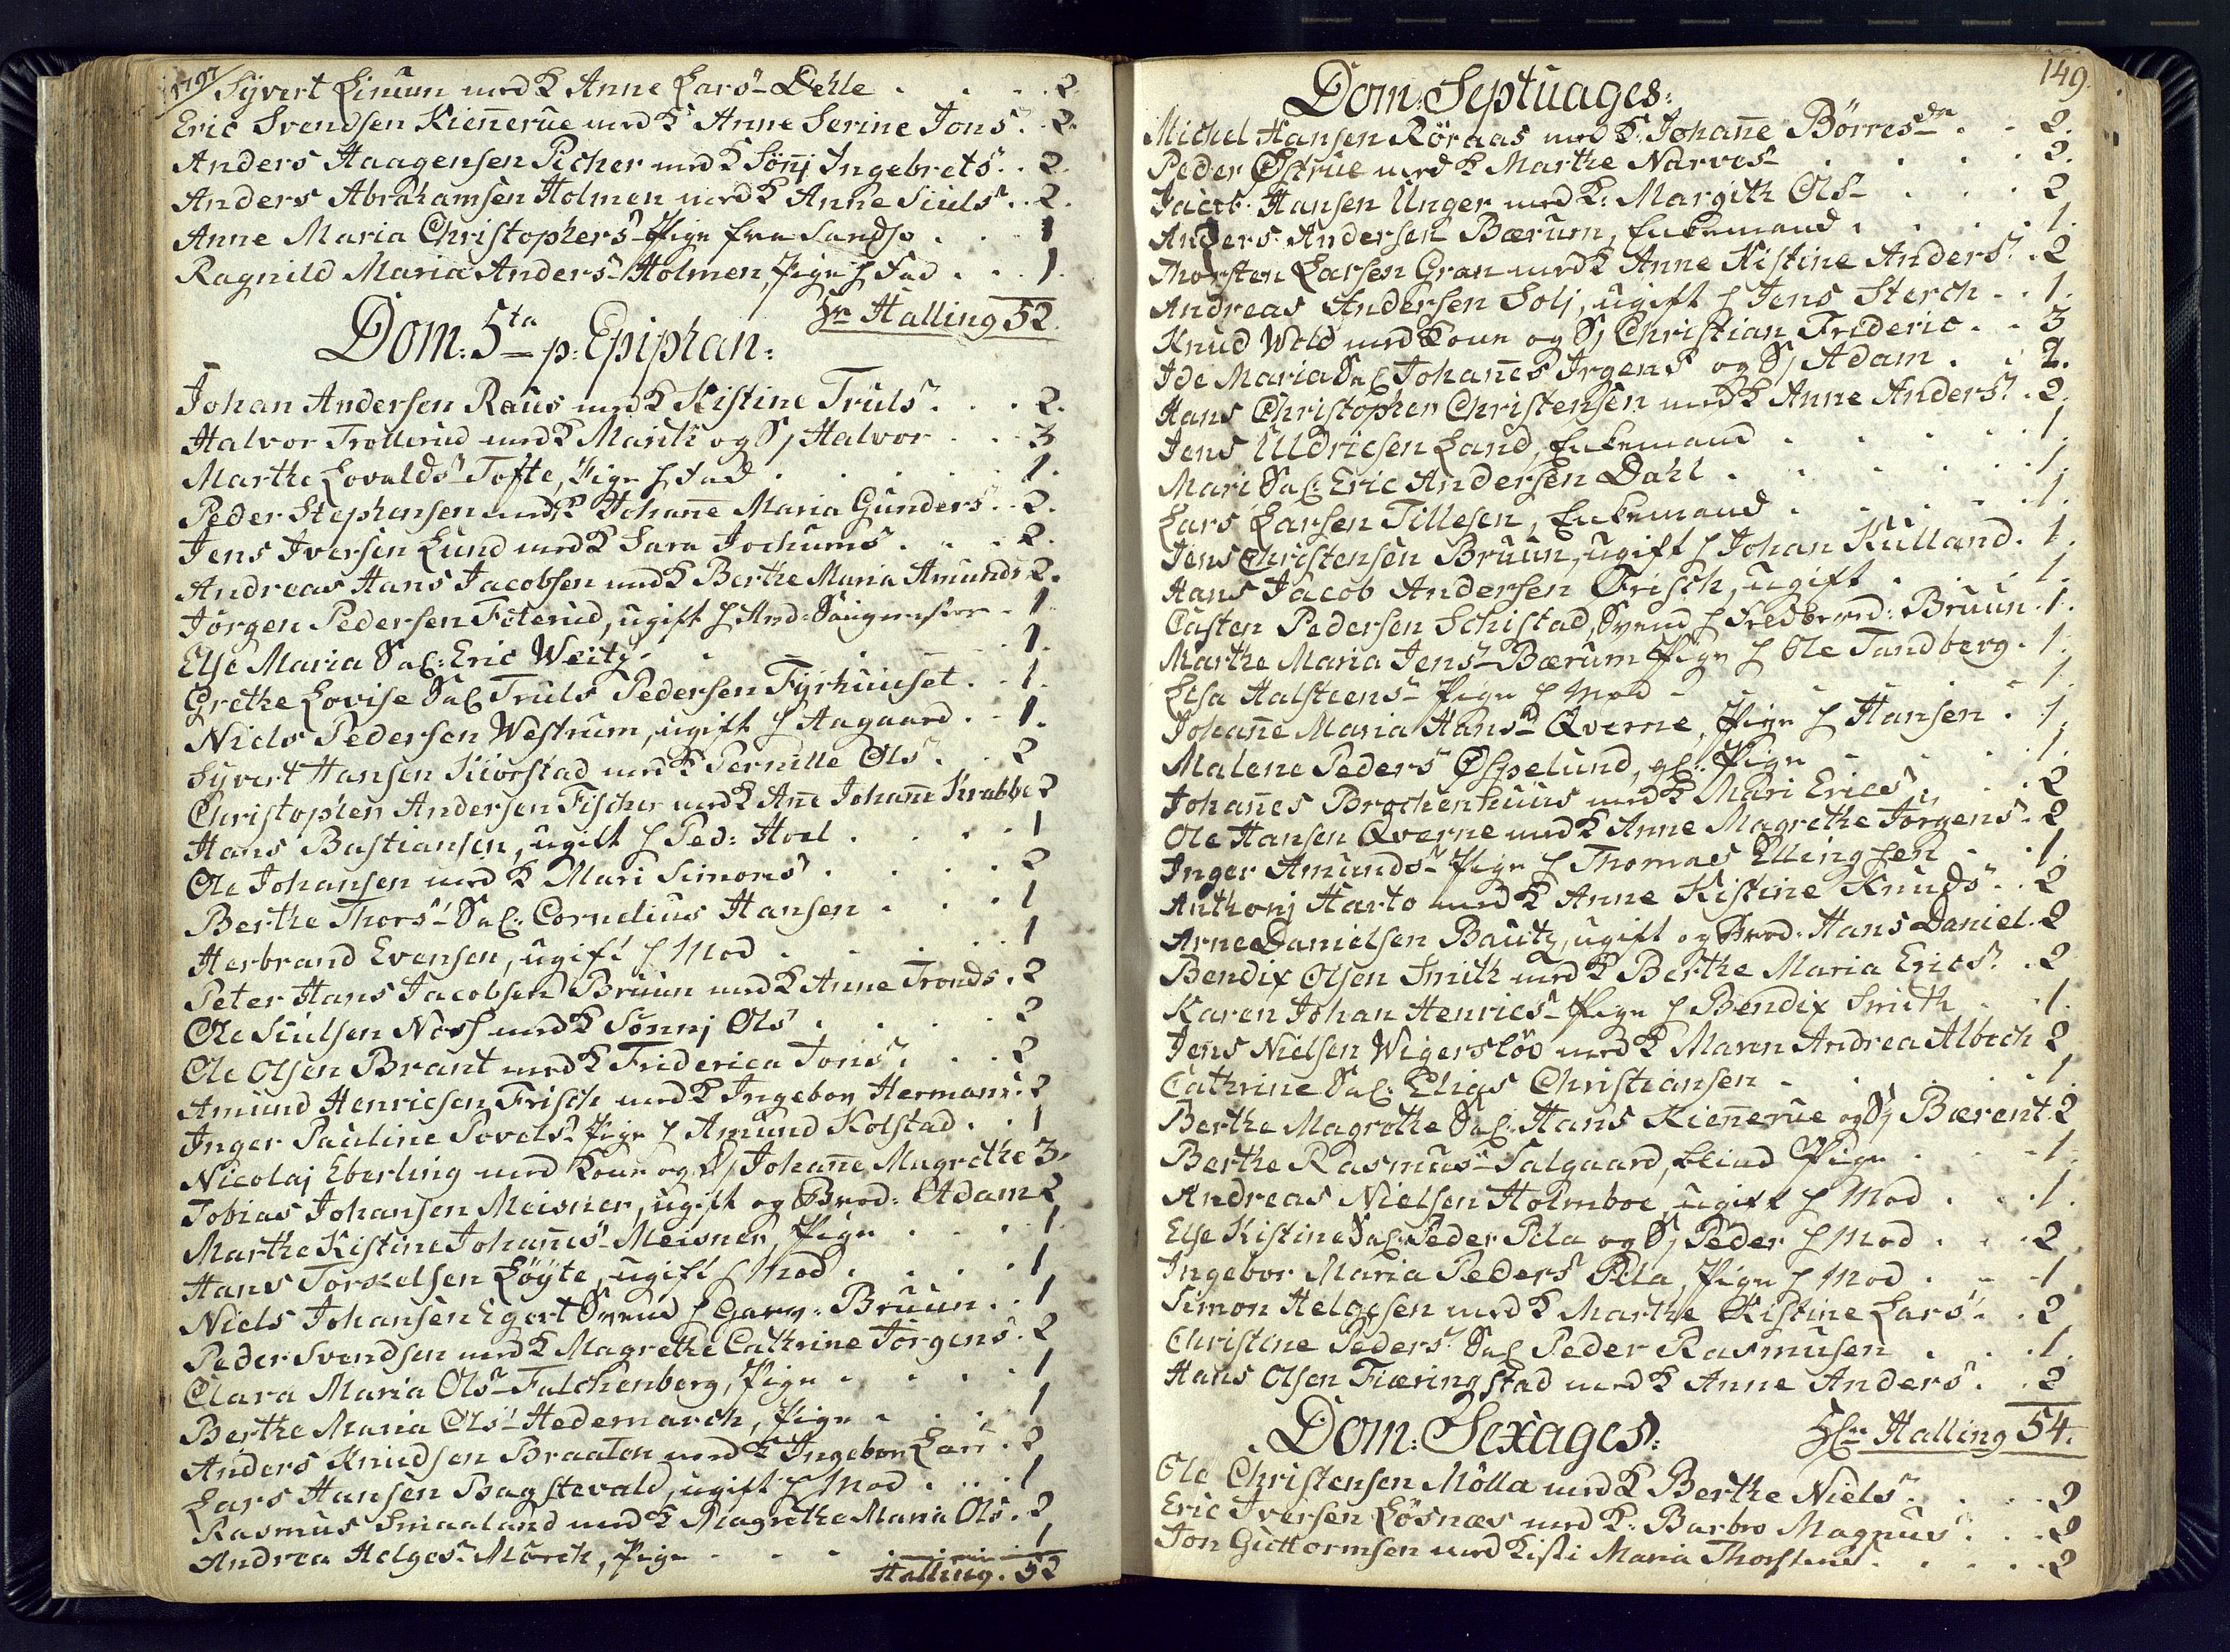 1797/ Syvert Linum med K Anne Lars- Dehle . . . . 2.
Eric Svendsen Kieñerue med K Anne Serine Jons . 2.
Anders Haagensen Picher med K Sönj Ingebrets . . 2.
Anders Abrahamsen Holmen med K Anne Siuls . . 2.
Anne Maria Christophers- Pige fra . . 1
Ragnild Maria Anders- Holmen, Pige f Fad . . . 1.
Hr Halling 52.
Dom: 5ta p: Epiphan:
Johan Andersen Raus med K Kistine Truls . . . 2.
Halvor Trollerud med K Marith og S/ Halvor . . . 3
Marthe Lovalds- Tofte, Pige f Fad . . . . . 1.
Peder Stephensen med K Johañe Maria Gunders . 2.
Jens Iversen Lund med K Sara Jochums . . . 2.
Andreas Hans Jacobsen med K Berthe Maria Amunds 2.
Jörgen Pedersen Foterud, ugift f And: . 1
Else Maria Sal: Eric Weitz . . . . 1.
Grethe Lovise Sal Truls Pedersen Fyrhuuset . . 1.
Niels Pedersen Westrum, ugift f Aagaard . . 1.
Syvert Hansen Kiorstad med K Pernille Ols . . 2
Christopher Andersen Fischer med K Añe Johañe Krabbe 2
Hans Bastiansen, ugift f Ped: Hoel . . . . 1
Ole Johansen med K Mari Simons . . . . 2
Berthe Thors- Sal: Cornelius Hansen . . . 1
Herbrand Evensen, ugift f Mod . . . . . 1
Peter Hans Jacobsen Bruun med K Anne Tronds . 2
Ole Siulsen Noss med K Sönnj Ols . . . . 2
Ole Olsen Brant med K Friderica Tons . . . 2
Amund Henricsen Frisch med K Ingebor Hermans . 2
Inger Pauline Povels- Pige f Amund Kolstad . . 1
Nicolaj Eberling med Kone og D/ Johañe Magrethe 3.
Tobias Johansen Meisner, ugift og Brod: Adam 2
Marthe Kistine Johañes- Meisner, Pige . . . . 1
Hans Torkelsen Löyte, ugift f Mod . . . . 1
Niels Johansen Egert Svend f Garv: Bruun . . 1
Peder Svendsen med K Magrethe Cathrine Jörgens . 2
Clara Maria Ols- Falchenberg, Pige . . . . 1
Berthe Maria Ols- Hedemarch, Pige . . . . 1
Anders Knudsen Braaten med K Ingebor Lars . 2
Lars Hansen Bagstevald, ugift f Mod . . . 1
Rasmus Smaaland med K Magrethe Maria Ols . 2
Andrea Helges- Mörch, Pige . . . . . 1
Halling . 52
149.
Dom: Septuages:
Michel Hansen Röraas med K: Johañe Börresdn . . 2.
Peder Østrue med K Marthe Narves- . . . . 2.
Jacob Hansen Unger med K: Margith Ols- . . . 2
Anders Andersen Bærum, Enkemand . . . . 1.
Thorsten Larsen Gran med K Anne Kistine Anders . 2
Andreas Andersen Solj, ugift f Jens Sterch . . 1.
Knud Wold med Kone og S/ Christian Frideric . . 3
Ide Maria Sal Johañes Irgens og S/ Adam . . 2.
Hans Christopher Christensen med K Anne Anders . 2.
Jens Uldricsen Land, Enkemand . . . . . 1.
Mari Sal: Eric Andersen Dahl . . . . . 1.
Lars Larsen Tillesen, Enkemand . . . . . 1.
Jens Christensen Bruun, ugift f Johan Kulland . 1.
Hans Jacob Andersen Frisch, ugift . . . . 1.
Casten Pedersen Schistad, Svend f Bruun . 1.
Marthe Maria Jens- Bærum Pige f Ole Tandberg . 1.
Lisa Halsteens- Pige f Mod . . . . . 1
Johañe Maria Hans- Qverne, Pige f Hansen . 1.
Malene Peders- Øspelund, gl: Pige . . . . 1.
Johañes Brochenhuus med K Mari Erics . . . 2
Ole Hansen Qverne med K Anne Magrethe Jörgens . 2
Inger Amunds- Pige f Thomas Ellingsen . . . 1
Anthonj Harto med K Anne Kistine Knuds . . 2
Arne Danielsen Bautz, ugift og Brod: Hans Daniel . 2
Bendix Olsen Smith med K Berthe Maria Erics . . 2
Karen Johan Henrics- Pige f Bendix Smith . . 1.
Jens Nielsen Wigerslöv med K Maren Andrea Albech 2
Cathrine Sal: Elias Christiansen . . . . . 1.
Berthe Magrethe Sal: Hans Kieñerue og S/ Bærent . 2
Berthe Rasmus- Salgaard, blind Pige . . . 1.
Andreas Nielsen Holmboe, ugift f Mod . . . 1.
Else Kistine Sal: Peder Pila og S/ Peder f Mod . . . 2
Ingebor Maria Peders- Pila, Pige f Mod . . . 1
Simon Helgesen med K Marthe Kistine Lars . . 2
Christine Peders- Sal Peder Rasmusen . . . 1.
Hans Olsen Fiæringstad med K Anne Anders . . 2
Dom: Sexages: Hr Halling 54.
Ole Christensen Mölla med K Berthe Niels . . . . 2
Eric Iversen Lösnæs med K: Barbro Magnus . . . 2
Jon Guttormsen med Kisti Maria Thorstens . . . . 2